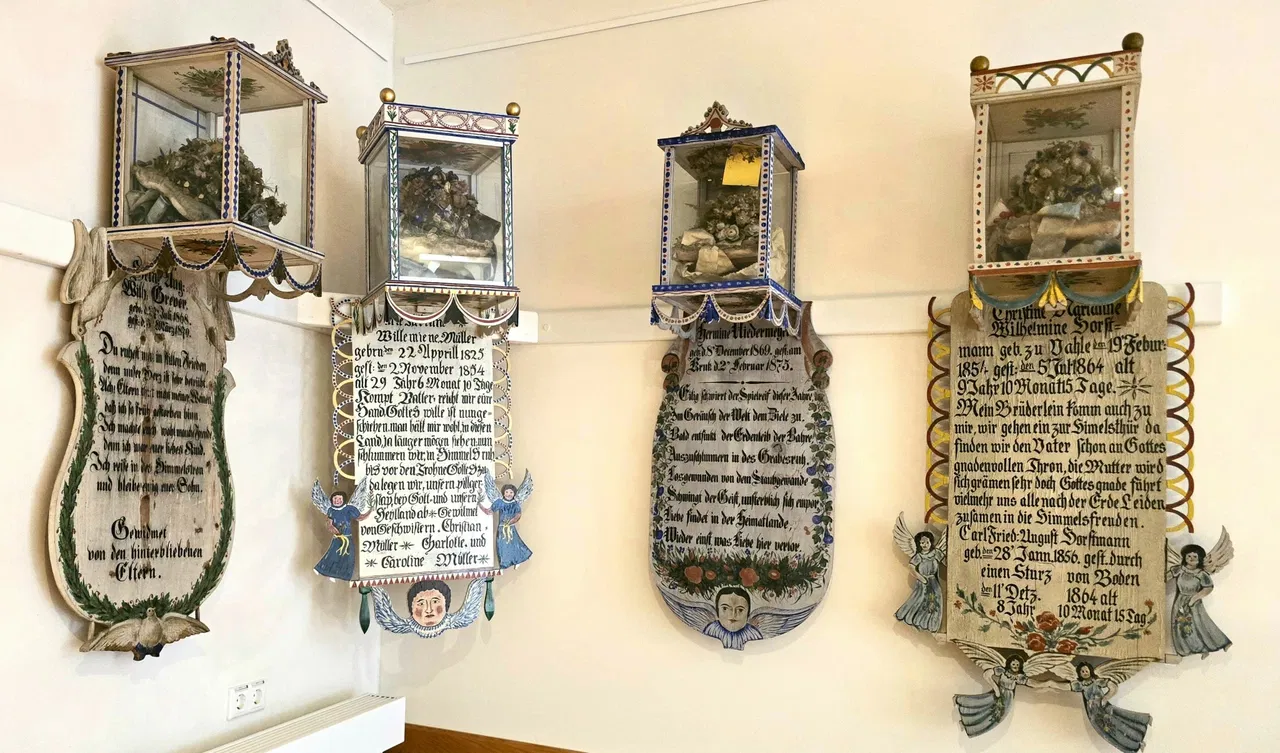 Wilh. Grever.
Du ruhest nun in stillen Frieden
denn unser Herz ist sehr betrübt.
Ich reise in das Himmelstron
und bleibe ewig euer Sohn.
Gewidmet
von den hinterbliebenen
Eltern.
Willemiene. Müller
gebrn den 22 Apprill 1825
gest: den 2 November 1854
alt 29 Jahr 6 Monat 10 Tage
Kompt Vatter reicht mir eure
Hand Gottes wille ist nunge-
schiehen. man hält mir wohl, in diesen
Land, ja länger mögen siehen. nun
schlummern wir, in Himmels ruh
bis vor den Trohne Gottes zu
da legen wir, unsern pillger
stab, bey Gott und unsern
Heyland ab * Gewitmet
von Geschwistern. Christian.
Müller * Carlotte. und
* Caroline Müller *
Hermine Niedermeyer
geb. d. 8t December 1869. gest. am
d. 2t Februar 1873.
Eilig schwirrt der Spielreif dieser Jahre,
Im Geräusch der Welt dem Ziele zu.
Bald entsinkt der Erdenleib der Bahre
Auszuschlummern in des Grabesruh.
Losgewunden von dem Staubgewande
Schwingt der Geist, unsterblich sich empor
Liebe findet in der Heimatlande,
Wieder einst was Liebe hier verlor.
Christine Marianne
Wilhelmine Horst-
mann geb. zu Vahle den 19t Febur.
185 gest: den 5t Juli 1864 alt
9 Jahr 10 Monat 15 Tage.
Mein Brüderlein komm auch zu
mir, wir gehen ein zur Himelsthür da
finden wir den Vater schon an Gottes
gnadenvollen Thron, die Mutter wird
sich grämen sehr doch Gottes gnade fährt
vielmehr uns alle nach der Erde Leiden
zusamen in die Himmelsfreuden.
Carl Fried: August Horstmann
geb. den 28t Jann. 1856. gest. durch
einen Sturz von Boden
den 11t Detz. 1864 alt
8 Jahr 10 Monat 15 Tag.